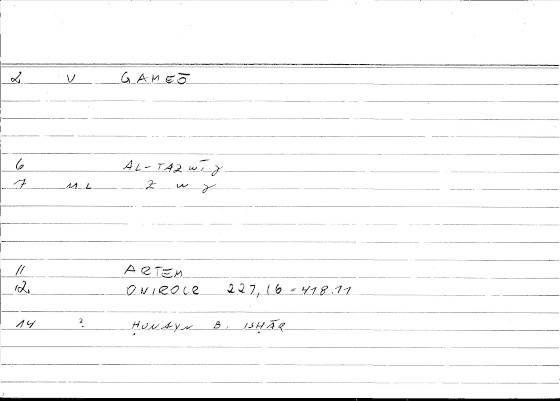 2 V GAMEŌ
6 AL-TAZWĪǧ
7 M.L Z W ǧ
11 ARTEM
12 ONIROCR 227,16 = 418.11
14 ? ḤUNAYN B. ISḤĀQ